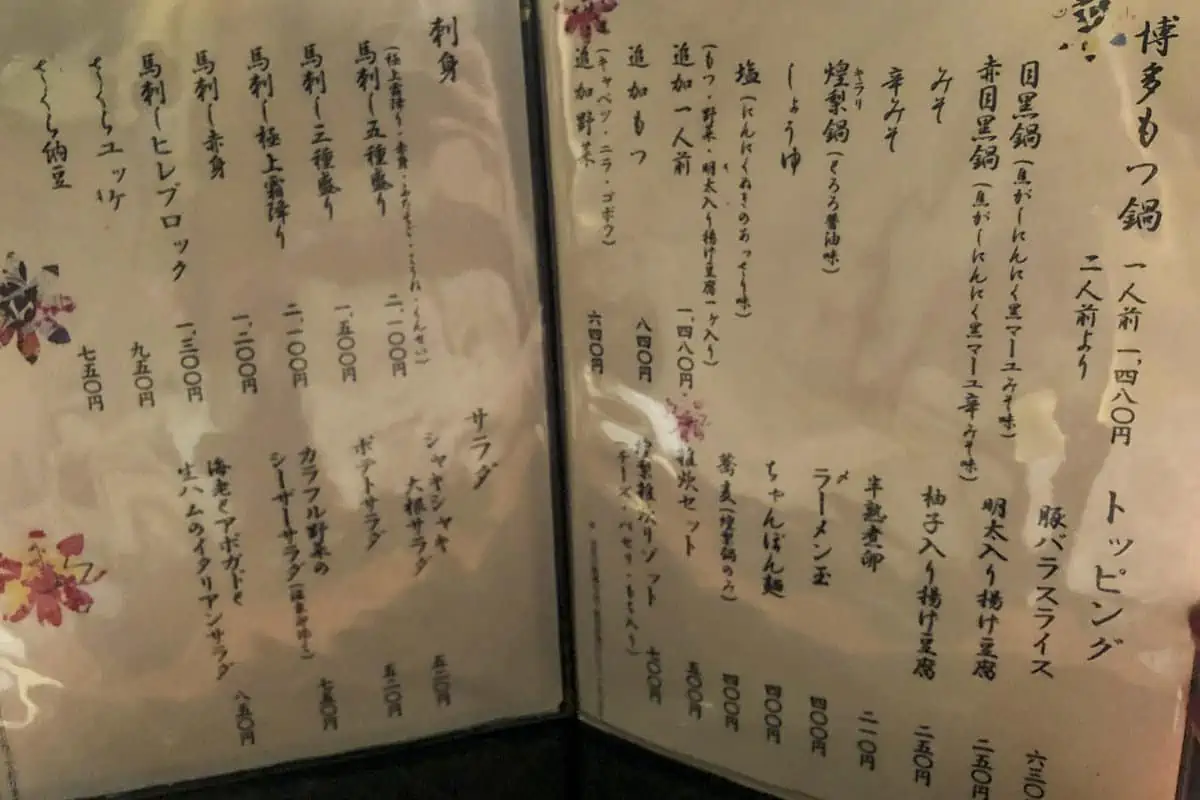 博多もつ鍋 一人前 一、四八〇円
二人前より
目黒鍋(焦がしにんにく黒マーユみそ味)
赤目黒鍋(焦がしにんにく黒マーユ辛みそ味)
みそ
辛みそ
キラリ
煌梨鍋(とろろ醤油味)
しょうゆ
塩(にんにくねぎのあっさり味)
(もつ・野菜・明太入り揚げ豆腐一ヶ入り)
追加一人前 一、四八〇円
追加もつ 八四〇円
(キャベツ・ニラ・ゴボウ)
追加野菜 六四〇円
トッピング
豚バラスライス 六三〇
明太入り揚げ豆腐 二五〇円
柚子入り揚げ豆腐 二五〇円
半熟煮卵 二一〇円
〆
ラーメン玉 四〇〇円
ちゃんぽん麺 四〇〇円
蕎麦(煌梨鍋のみ) 四〇〇円
雑炊セット 五〇〇円
リゾット 七〇〇円
チーズ・パセリ
刺身
馬刺し五種盛り 二、一〇〇円
馬刺し三種盛り 一、五〇〇円
馬刺し極上霜降り 二、一〇〇円
馬刺し赤身 一、二〇〇円
馬刺しヒレブロック 一、三〇〇円
さくらユッケ 九五〇円
さくら納豆 七五〇円
サラダ
シャキシャキ
大根サラダ 五二〇円
ポテトサラダ 五二〇円
カラフル野菜の
シーザーサラダ 七五〇円
海老とアボガドと
生ハムのイタリアンサラダ 八五〇円